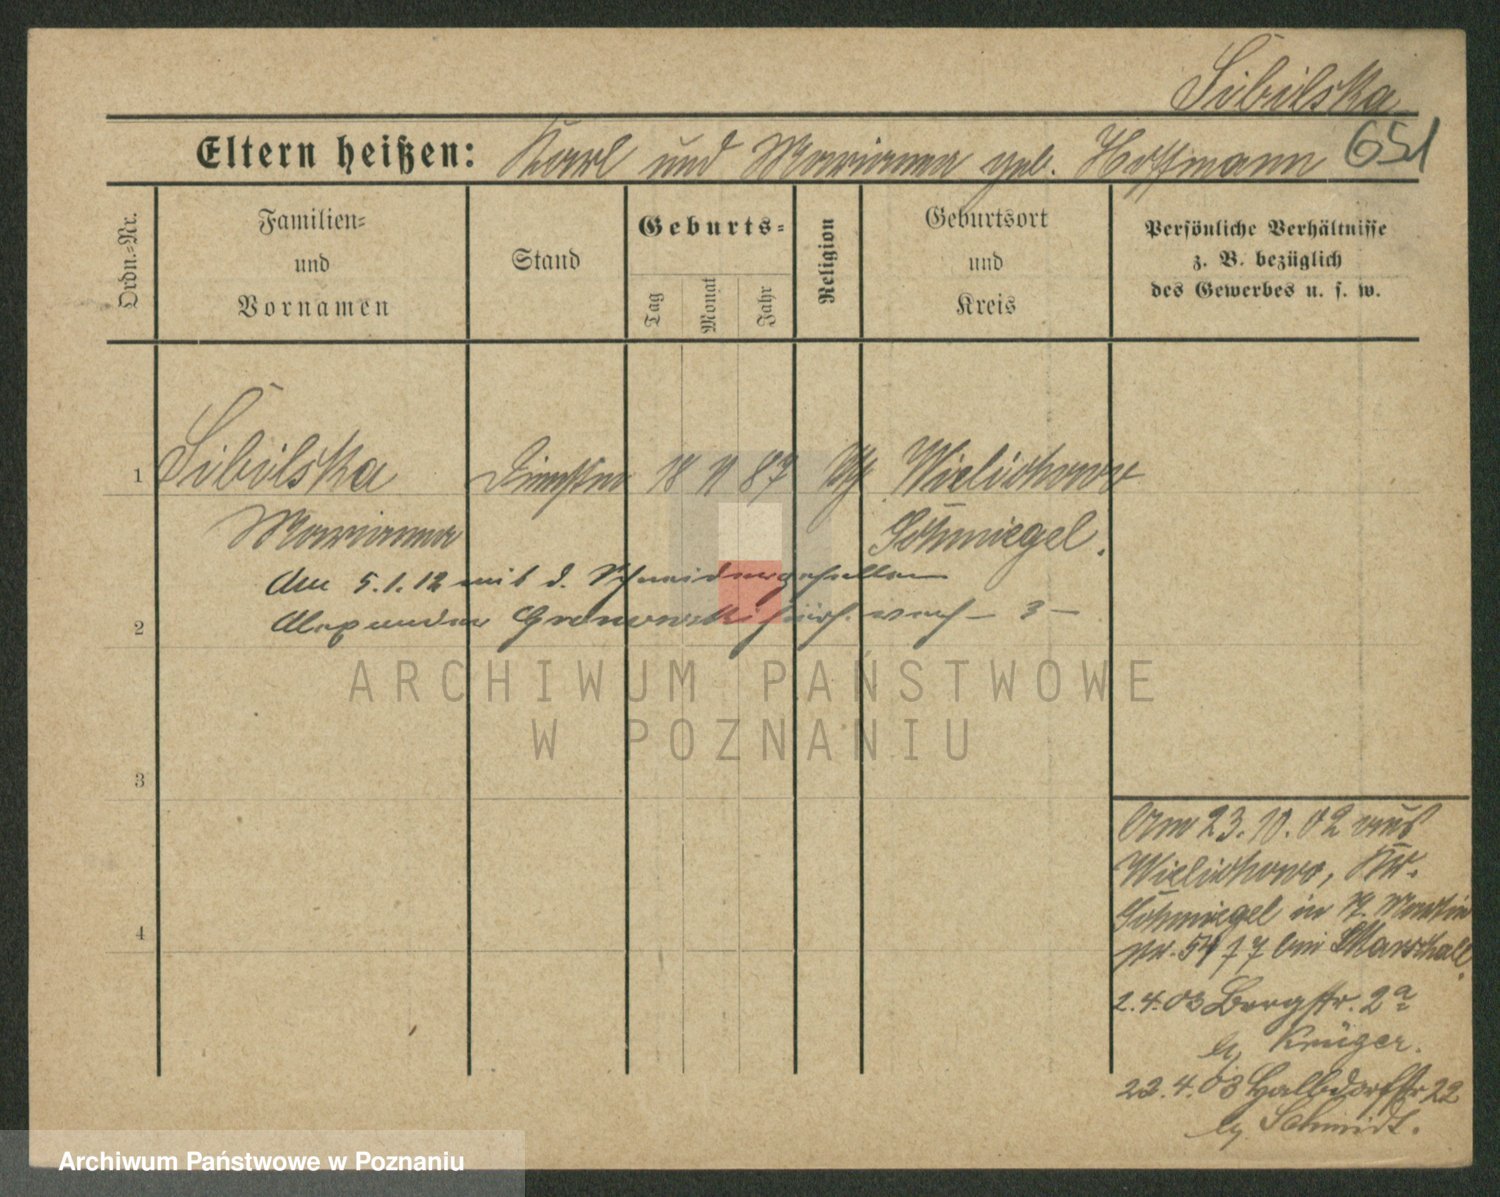 Sibilska
Eltern heißen: Karl und Marianna geb. Hoffmann 651
Ordn.-Nr.
Familien-
und
Vornamen
Stand
Geburts-
Tag
Monat
Jahr
Religion
Geburtsort
und
Kreis
Persönliche Verhältnisse
z. B. bezüglich
des Gewerbes u. s. w.
1 Sibilska 18 11 87 Wielichowo
Marianna Schmiegel.
Am 5.1.12 mit d. Schneidergesellen
2 Alexander verh – 3 –
ARCHIWUM PAŃSTWOWE
W POZNANIU
3
Am 23.10.02 aus
Wielichowo, Kr.
Schmiegel in Martin
Nr. bei Marschall.
4
2.4.03 Bergstr. 2a
b/ Krüger.
22.4.03 Halbdorfstr 22
b/ Schmidt.
Archiwum Państwowe w Poznaniu